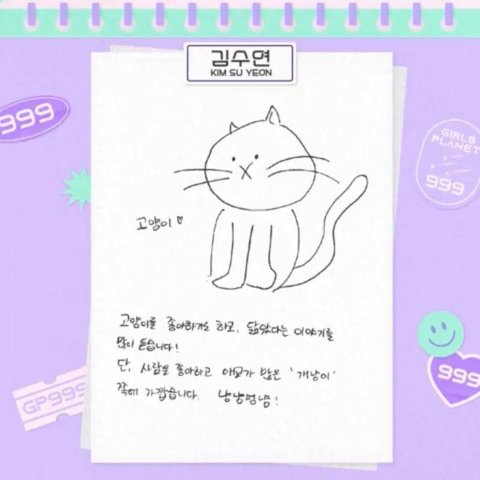 김수연
KIM SU YEON
999
GIRLS
PLANET
999
고양이
고양이를 좋아하기도 하고, 닮았다는 이야기를
많이 듣습니다!
단, 사람을 좋아하고 애교가 많은 '개냥이'
쪽에 가깝습니다. 냥냥멍냥!
999
GP999